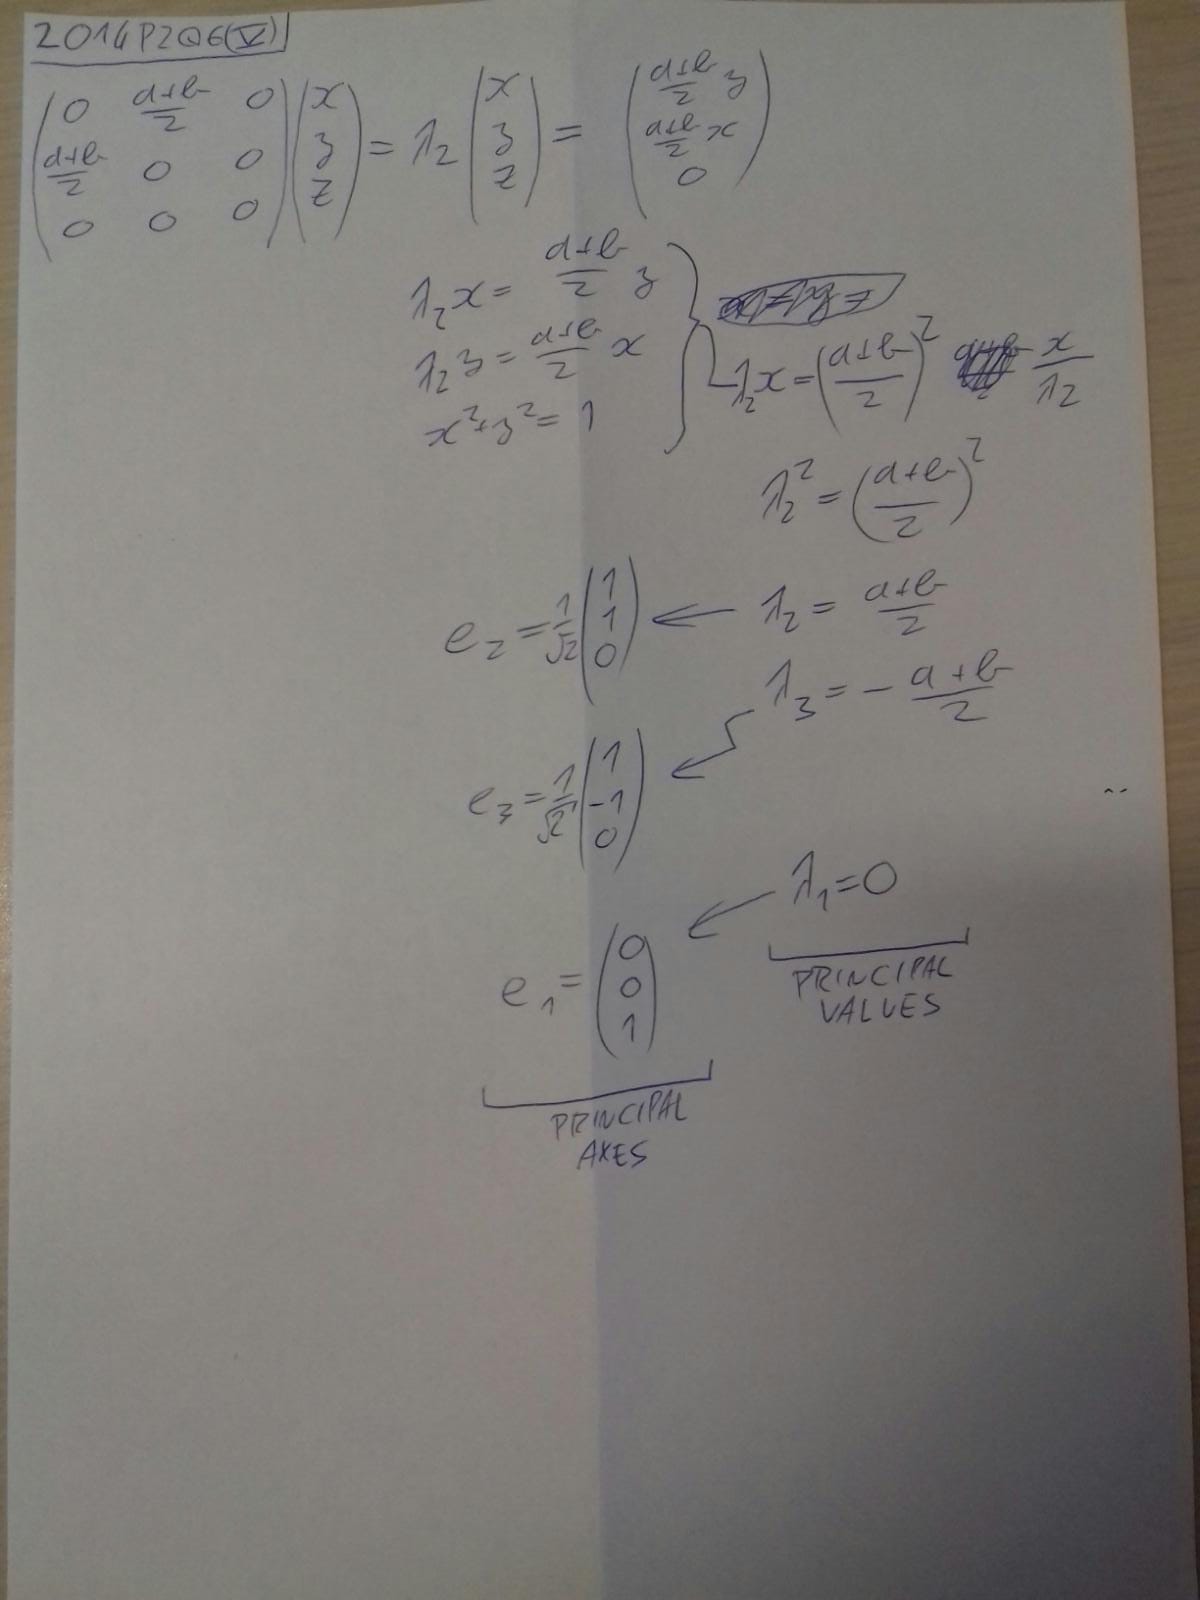 2014P2Q6(V)
(0 a+b/2 0; a+b/2 0 0; 0 0 0)(x; y; z) = λ₂ (x; y; z) = (a+b/2 y; a+b/2 x; 0)
λ₂x = a+b/2 y
λ₂y = a+b/2 x
x² + y² = 1
λ₂x = (a+b/2)² x/λ₂
λ₂² = (a+b/2)²
e₂ = 1/√2 (1; 1; 0) ← λ₂ = a+b/2
λ₃ = - a+b/2
e₃ = 1/√2 (1; -1; 0) ←
λ₁ = 0
e₁ = (0; 0; 1) ←
PRINCIPAL
VALUES
PRINCIPAL
AXES